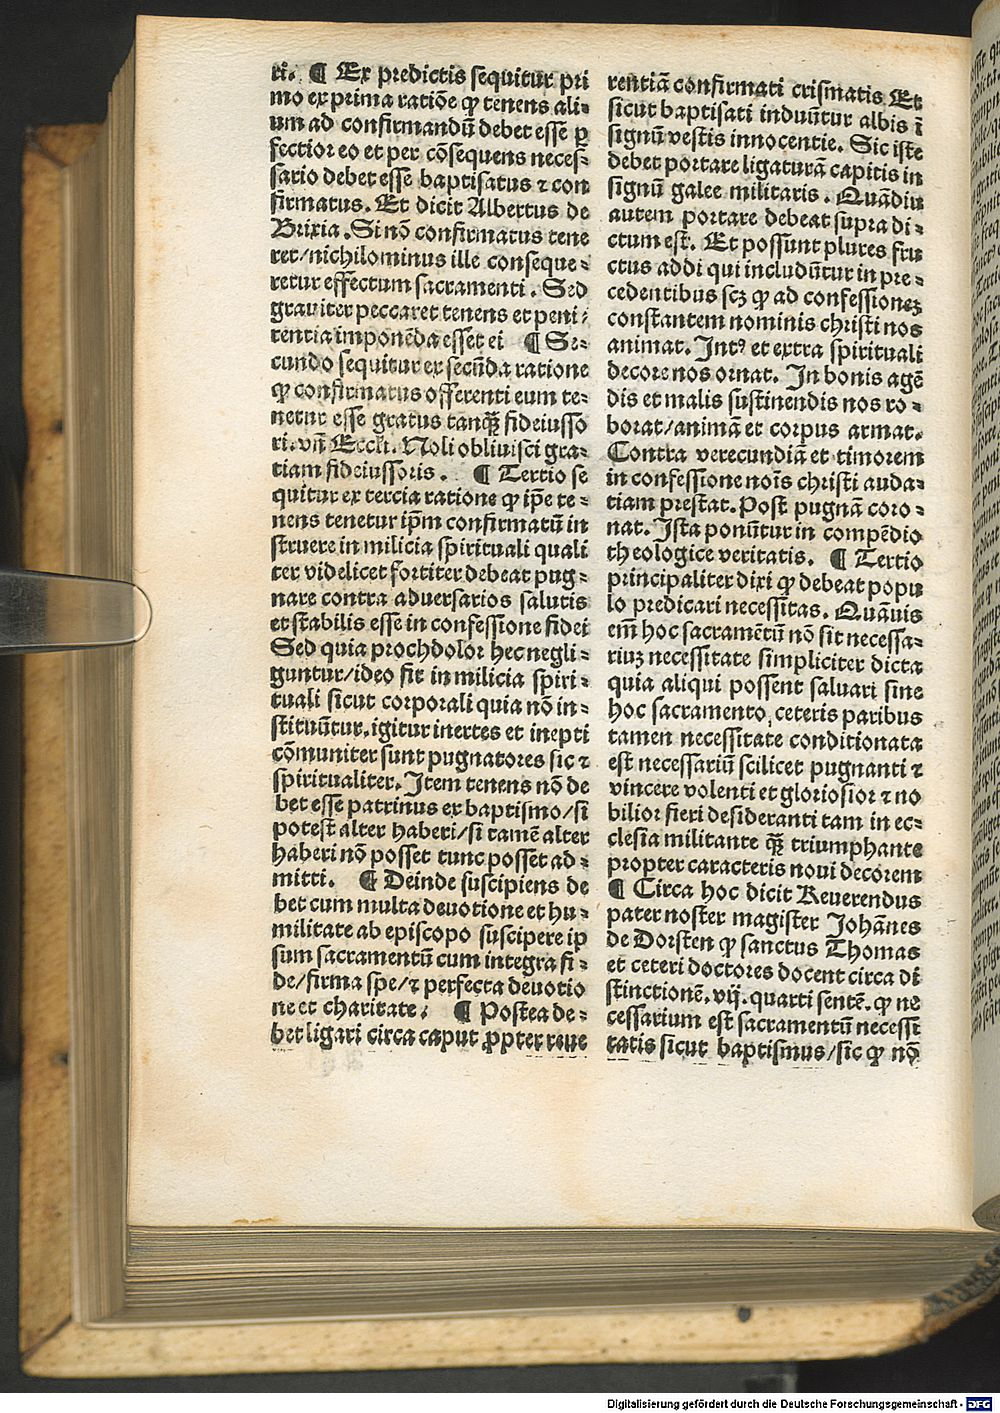 ri. ¶ Ex predictis sequitur pri
mo ex prima ratiõe ꝙ tenens ali-
um ad confirmandũ debet esse ꝑ
fectior eo et per cõsequens neces-
sario debet esse baptisatus ⁊ con
firmatus. Et dicit Albertus de
Brixia. Si nõ confirmatus tene
ret/nichilominus ille conseque-
retur effectum sacramenti. Sed
grauiter peccaret tenens et peni/
tentia imponẽda esset ei ¶ Se-
cundo sequitur ex secũda ratione
ꝙ confirmatus offerenti eum te-
netur esse gratus tanꝗ̃ fideiusso
ri. vñ Eccli. Noli obliuisci gra-
tiam fideiussoris. ¶ Tertio se
quitur ex tercia ratione ꝙ ip̃e te-
nens tenetur ip̃m confirmatũ in
struere in milicia spirituali quali
ter videlicet fortiter debeat pug-
nare contra aduersarios salutis
et stabilis esse in confessione fidei
Sed quia prochdolor hec negli-
guntur/ideo fit in milicia spiri-
tuali sicut corporali quia nõ in-
stituũtur. igitur inertes et inepti
cõmuniter sunt pugnatores sic ⁊
spiritualiter. Item tenens nõ de
bet esse patrinus ex baptismo/si
potest alter haberi/si tamẽ alter
haberi nõ posset tunc posset ad-
mitti. ¶ Deinde suscipiens de
bet cum multa deuotione et hu-
militate ab episcopo suscipere ip
sum sacramentũ cum integra fi-
de/firma spe/⁊ perfecta deuotio
ne et charitate. ¶ Postea de-
bet ligari circa caput ꝓpter reue
rentiã confirmati crismatis Et
sicut baptisati induũtur albis ĩ
signũ vestis innocentie. Sic iste
debet portare ligaturã capitis in
signũ galee militaris. Quãdiu
autem portare debeat supra di-
ctum est. Et possunt plures fru
ctus addi qui includũtur in pre-
cedentibus scꝫ ꝙ ad confessionẽꝫ
constantem nominis christi nos
animat. Intꝰ et extra spirituali
decore nos ornat. In bonis agẽ
dis et malis sustinendis nos ro-
borat/animã et corpus armat.
Contra verecundiã et timorem
in confessione noĩs christi auda-
tiam prestat. Post pugnã coro-
nat. Ista ponũtur in compẽdio
theologice veritatis. ¶ Tertio
principaliter dixi ꝙ debeat popu
lo predicari necessitas. Quãuis
em̃ hoc sacramẽtũ nõ sit necessa-
riuꝫ necessitate simpliciter dicta
quia aliqui possent saluari sine
hoc sacramento, ceteris paribus
tamen necessitate conditionata
est necessariũ scilicet pugnanti ⁊
vincere volenti et gloriosior ⁊ no
bilior fieri desideranti tam in ec-
clesia militante ꝗ̃ triumphante
propter caracteris noui decorem
¶ Circa hoc dicit Reuerendus
pater noster magister Johãnes
de Dorsten ꝙ sanctus Thomas
et ceteri doctores docent circa di
stinctionẽ. vij. quarti sentẽ. ꝙ ne
cessarium est sacramentũ necessi
tatis sicut baptismus/sic ꝙ nõ
Digitalisierung gefördert durch die Deutsche Forschungsgemeinschaft - DFG